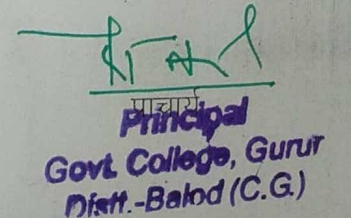 प्राचार्य
Principal
Govt. College, Gurur
Distt.-Balod (C.G.)